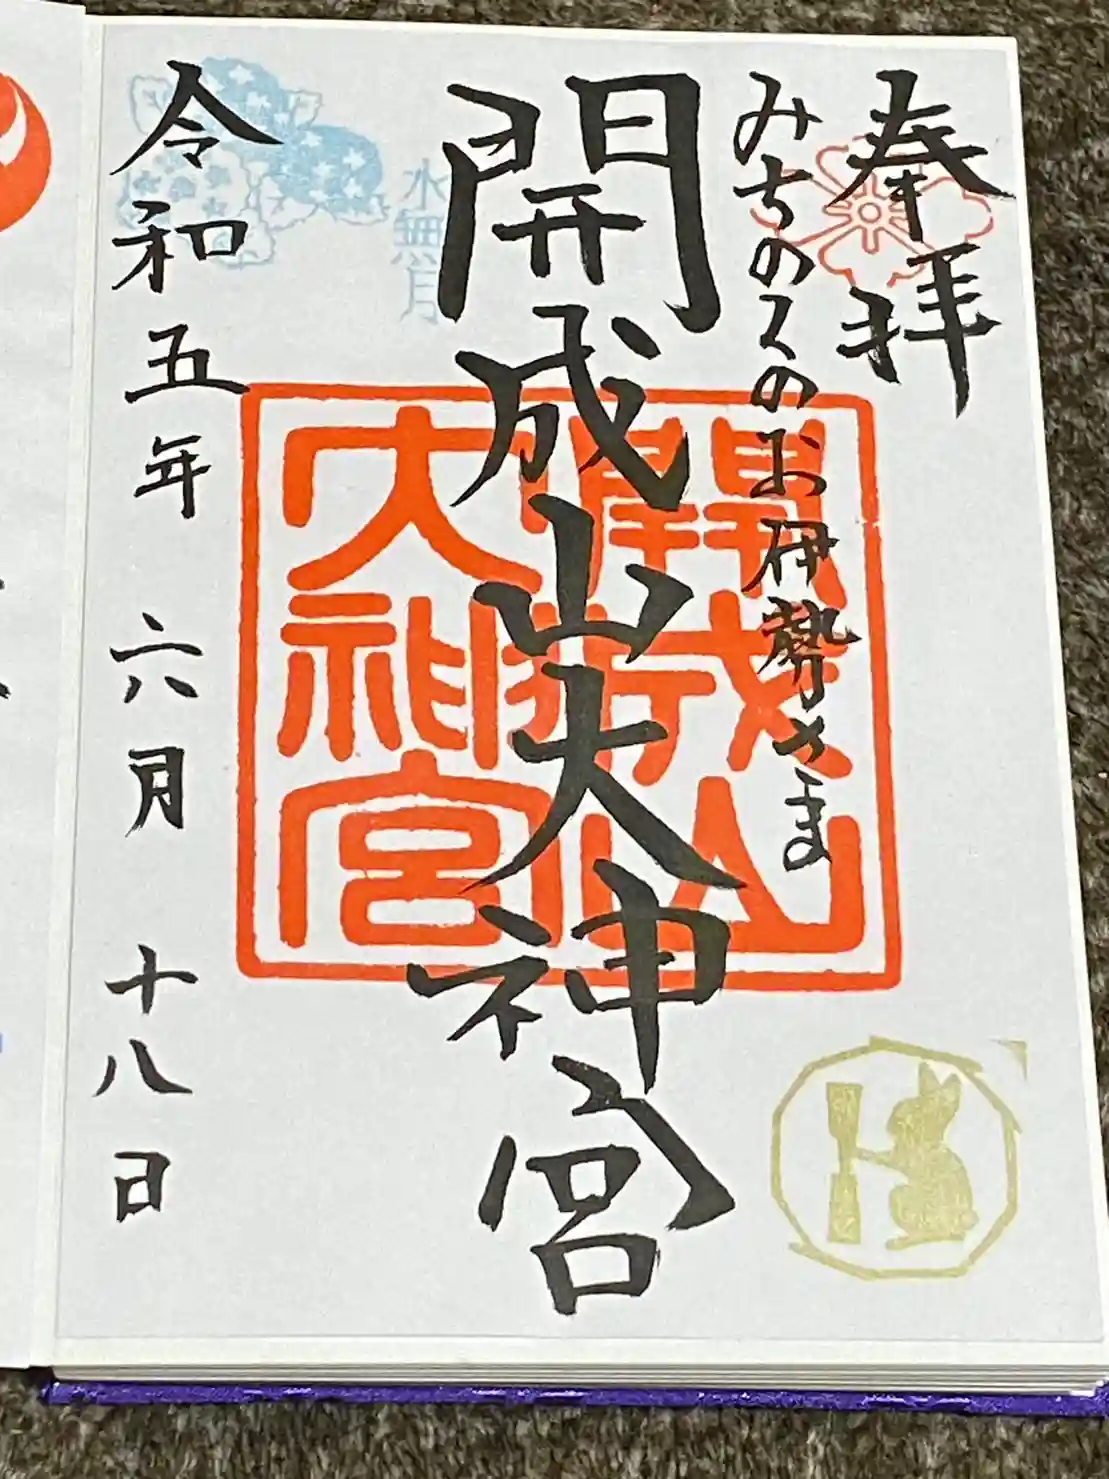 奉拝
みちのくのお伊勢さま
開成山大神宮
開成山
大神宮
水無月
令和五年六月十八日